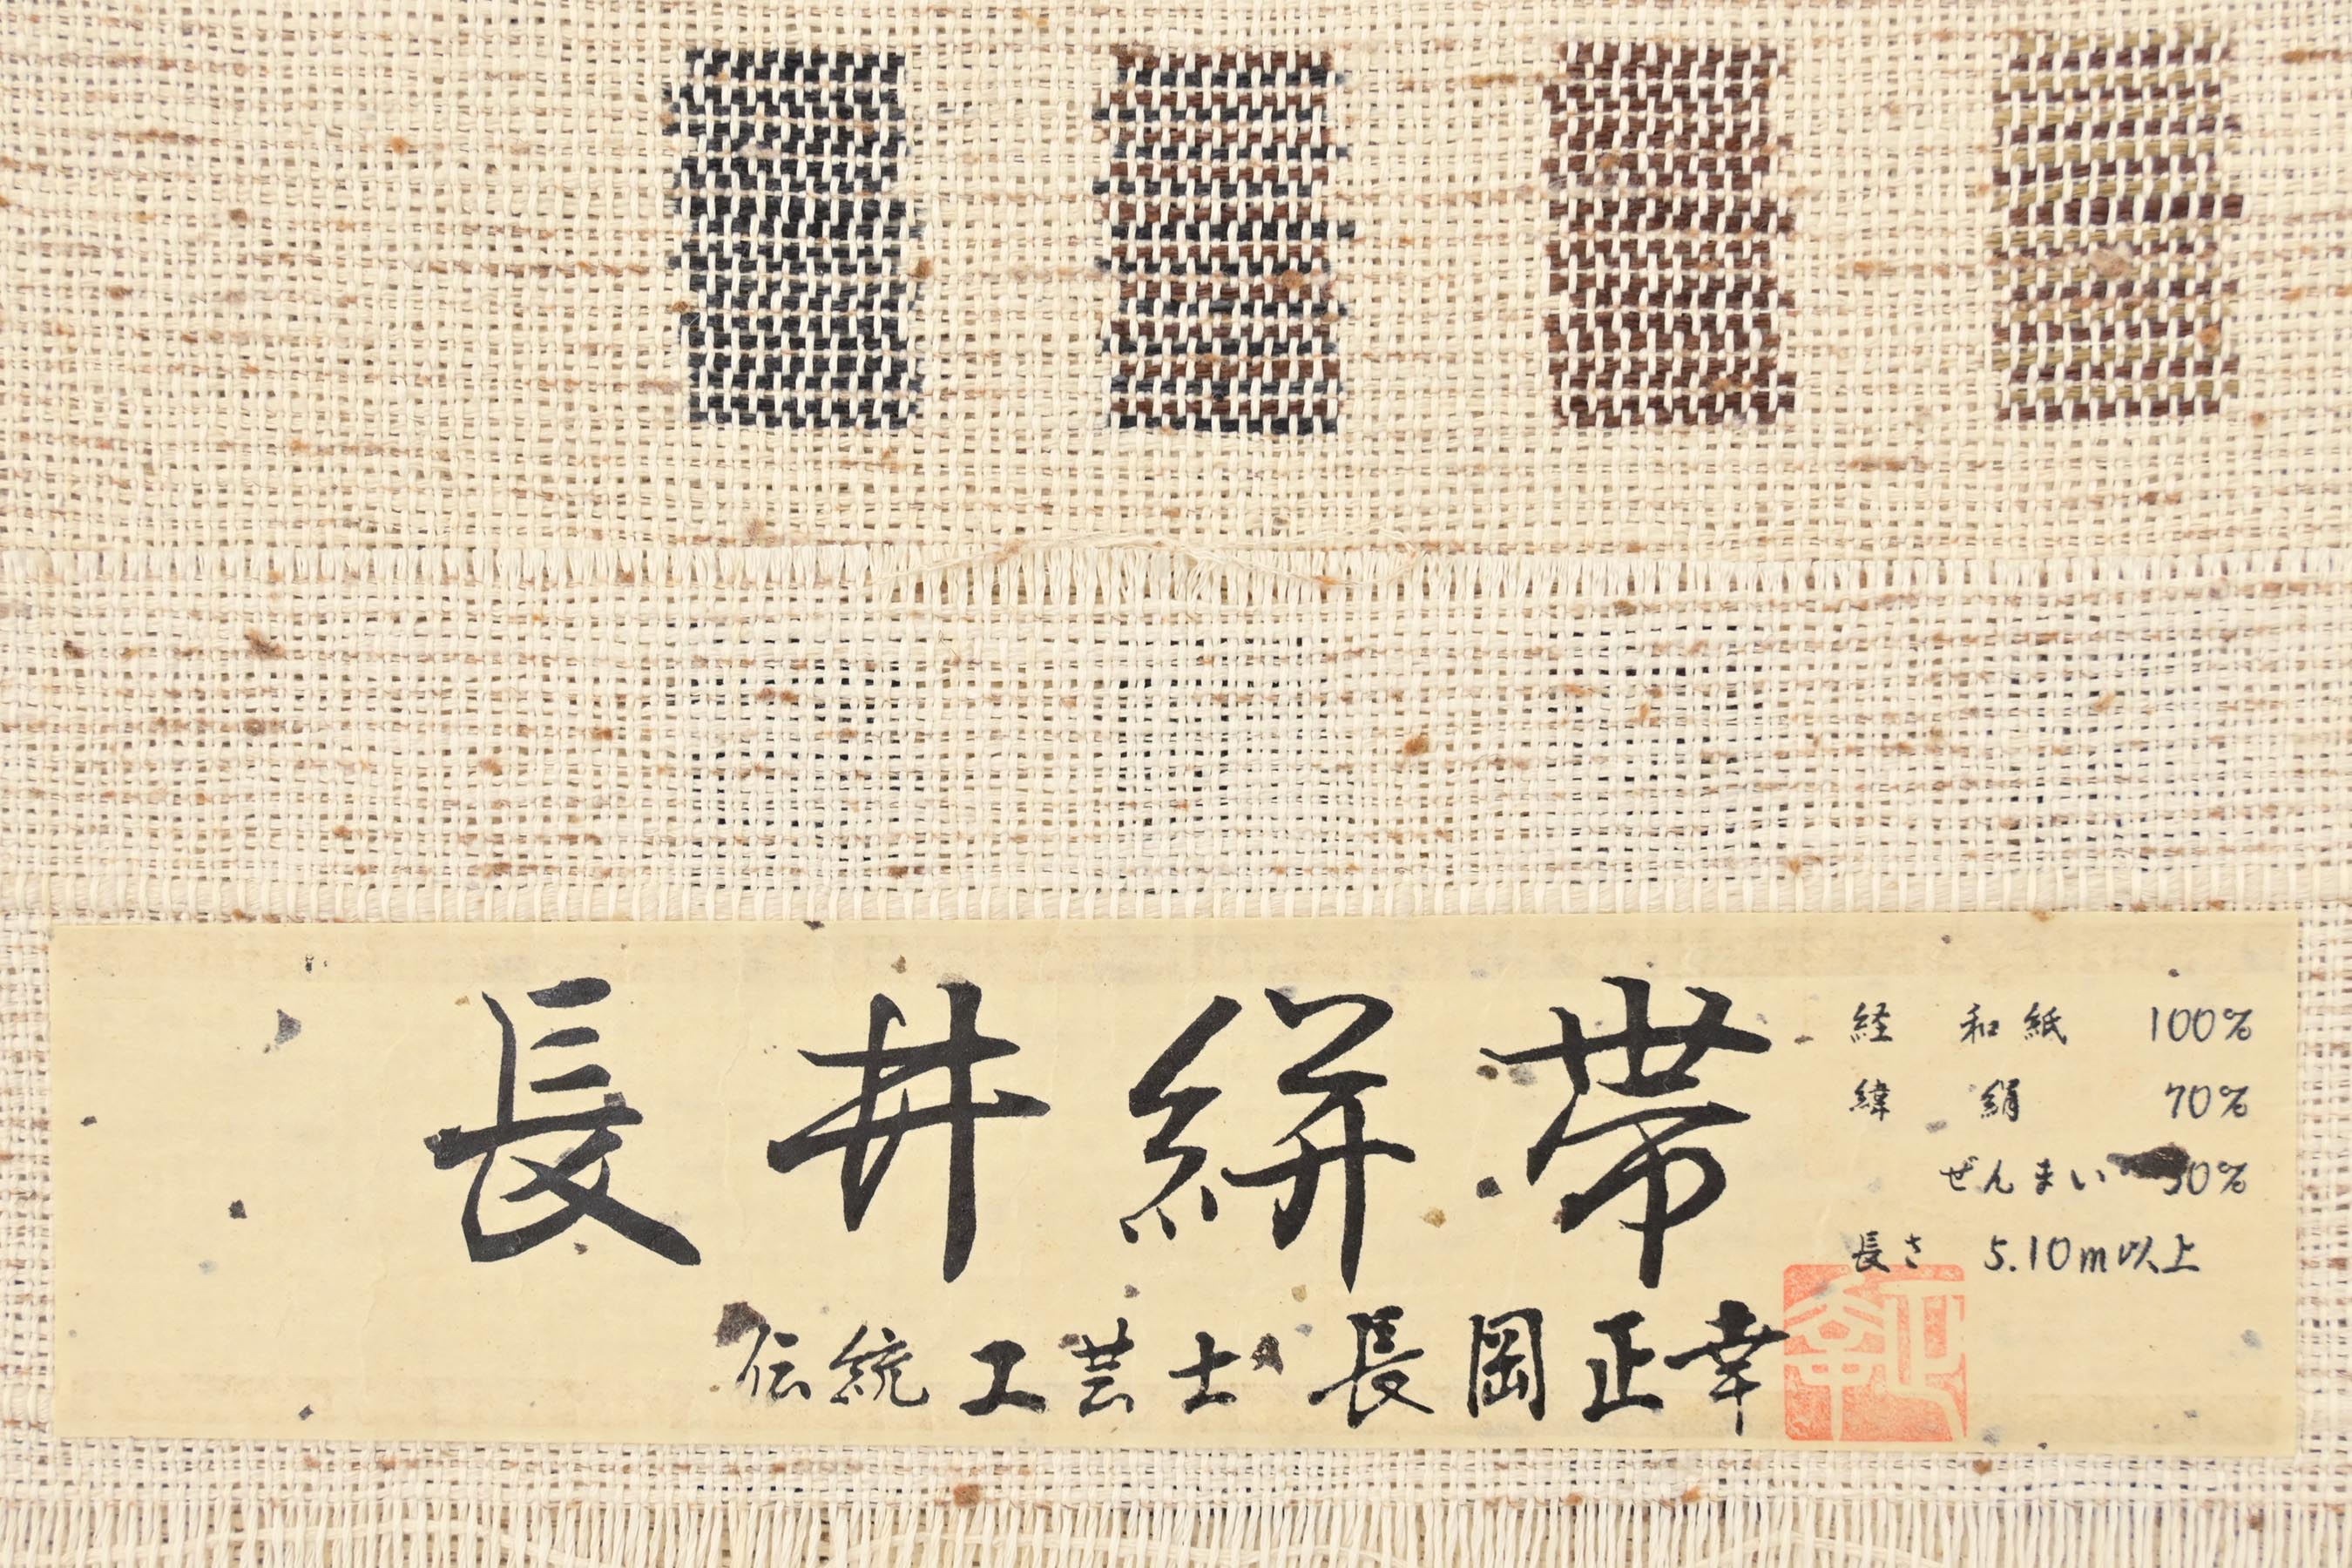 長井絣帯
経 和紙 100%
緯 絹 70%
ぜんまい 30%
長さ 5.10m以上
伝統工芸士 長岡正幸